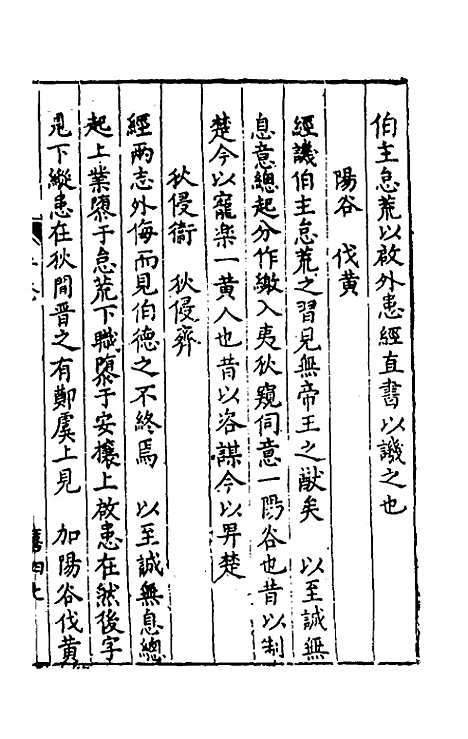 伯主怠荒以啟外患經直書以譏之也
陽谷　伐黄
經譏伯主怠荒之習見無帝王之猷矣　以至誠無
息意總起分作繳入夷狄窺伺意一陽谷也昔以制
楚今以寵楽一黄人也昔以洛謀今以昇楚
狄侵衞　狄侵齊
經兩志外侮而見伯德之不終焉　以至誠無息總
起上業隳于怠荒下職隳于安攘上啟患在然後字
見下縱患在狄閒晋之有鄭虞上見　加陽谷伐黄